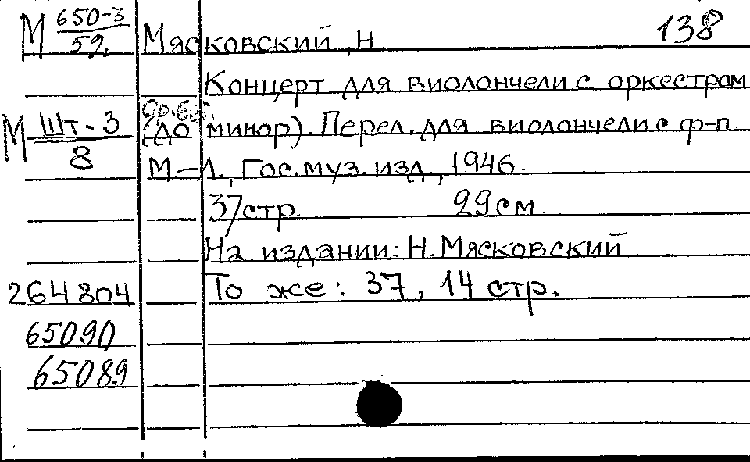 М 650-3/59. Мясковский, Н 138
Концерт для виолончели с оркестром
М Шт-3/8 (до минор). Перел. для виолончели с ф-п
М-Л., Гос. муз. изд, 1946.
37стр. 29см
На издании: Н. Мясковский
264804 То же: 37, 14 стр.
65090
65089